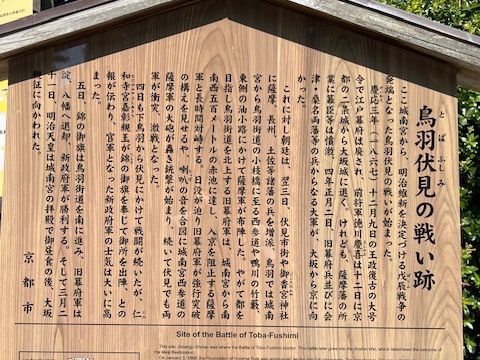 鳥羽伏見の戦い跡
とばふしみ
ここ城南宮から、明治維新を決定づける戊辰戦争の
発端となった鳥羽伏見の戦いが始まった。
慶応三年(一八六七)十二月九日の王政復古の大号
令で江戸幕府は廃され、前将軍徳川慶喜は十二日に京
都の二条城から大坂城に退く。けれども、薩摩藩の所
業に幕臣等は憤激、四年正月二日、旧幕府兵並びに会
津・桑名両藩等の兵からなる大軍が、大坂から京に向
かった。
これに対し朝廷は、翌三日、伏見市街や御香宮神社
に薩摩、長州、土佐等諸藩の兵を増派、鳥羽では城南
宮から鳥羽街道の小枝橋に至る西参道や鴨川の竹藪、
東側の油小路にかけて薩摩兵が布陣した。やがて都を
目指し鳥羽街道を北上する旧幕府軍は、城南宮から南
南西五百メートルの赤池に達し、入京を阻止する薩摩
軍と長時間対峙する。日没が迫り旧幕府軍が強行突破
の構えを見せるや、喇叭の音を合図に城南宮西参道の
薩摩軍の大砲が轟き銃撃が始まり、続いて伏見でも両
軍が衝突、激戦となった。
四日も下鳥羽から伏見にかけて戦闘が続いたが、仁
和寺宮嘉彰親王が錦の御旗を奉じて御所を出陣、との
報が伝わり、官軍となった新政府軍の士気は大いに高
まった。
五日、錦の御旗は鳥羽街道を南に進み、旧幕府軍は
淀、八幡へ退却、新政府軍が勝利する。そして三月二
十一日、明治天皇は城南宮の拝殿で御昼食の後、大坂
親征に向かわれた。
京都市
Site of the Battle of Toba-Fushimi
This site, Jonangu Shrine, was where the Battle of Toba-Fushimi started. This battle led into the Boshin War, which determined the outcome of
the Meiji Restoration.